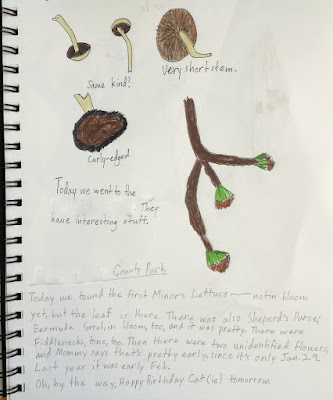 Same kind?
Very short stem.
Curly-edged
Today we went to the
They
have interesting stuff.
County Park
Today we found the first Minor's Lettuce — not in bloom
yet, but the leaf is there. There was also Sheperd's Purse,
Bermuda Sorrel, in bloom, too, and it was pretty. There were
Fiddlenecks, tons, too. Then there were two unidentified flowers,
and Mommy says that's pretty early, since it's only Jan. 29.
Last year it was early Feb.
Oh, by the way, Happy Birthday Cat(ie) tomorrow.